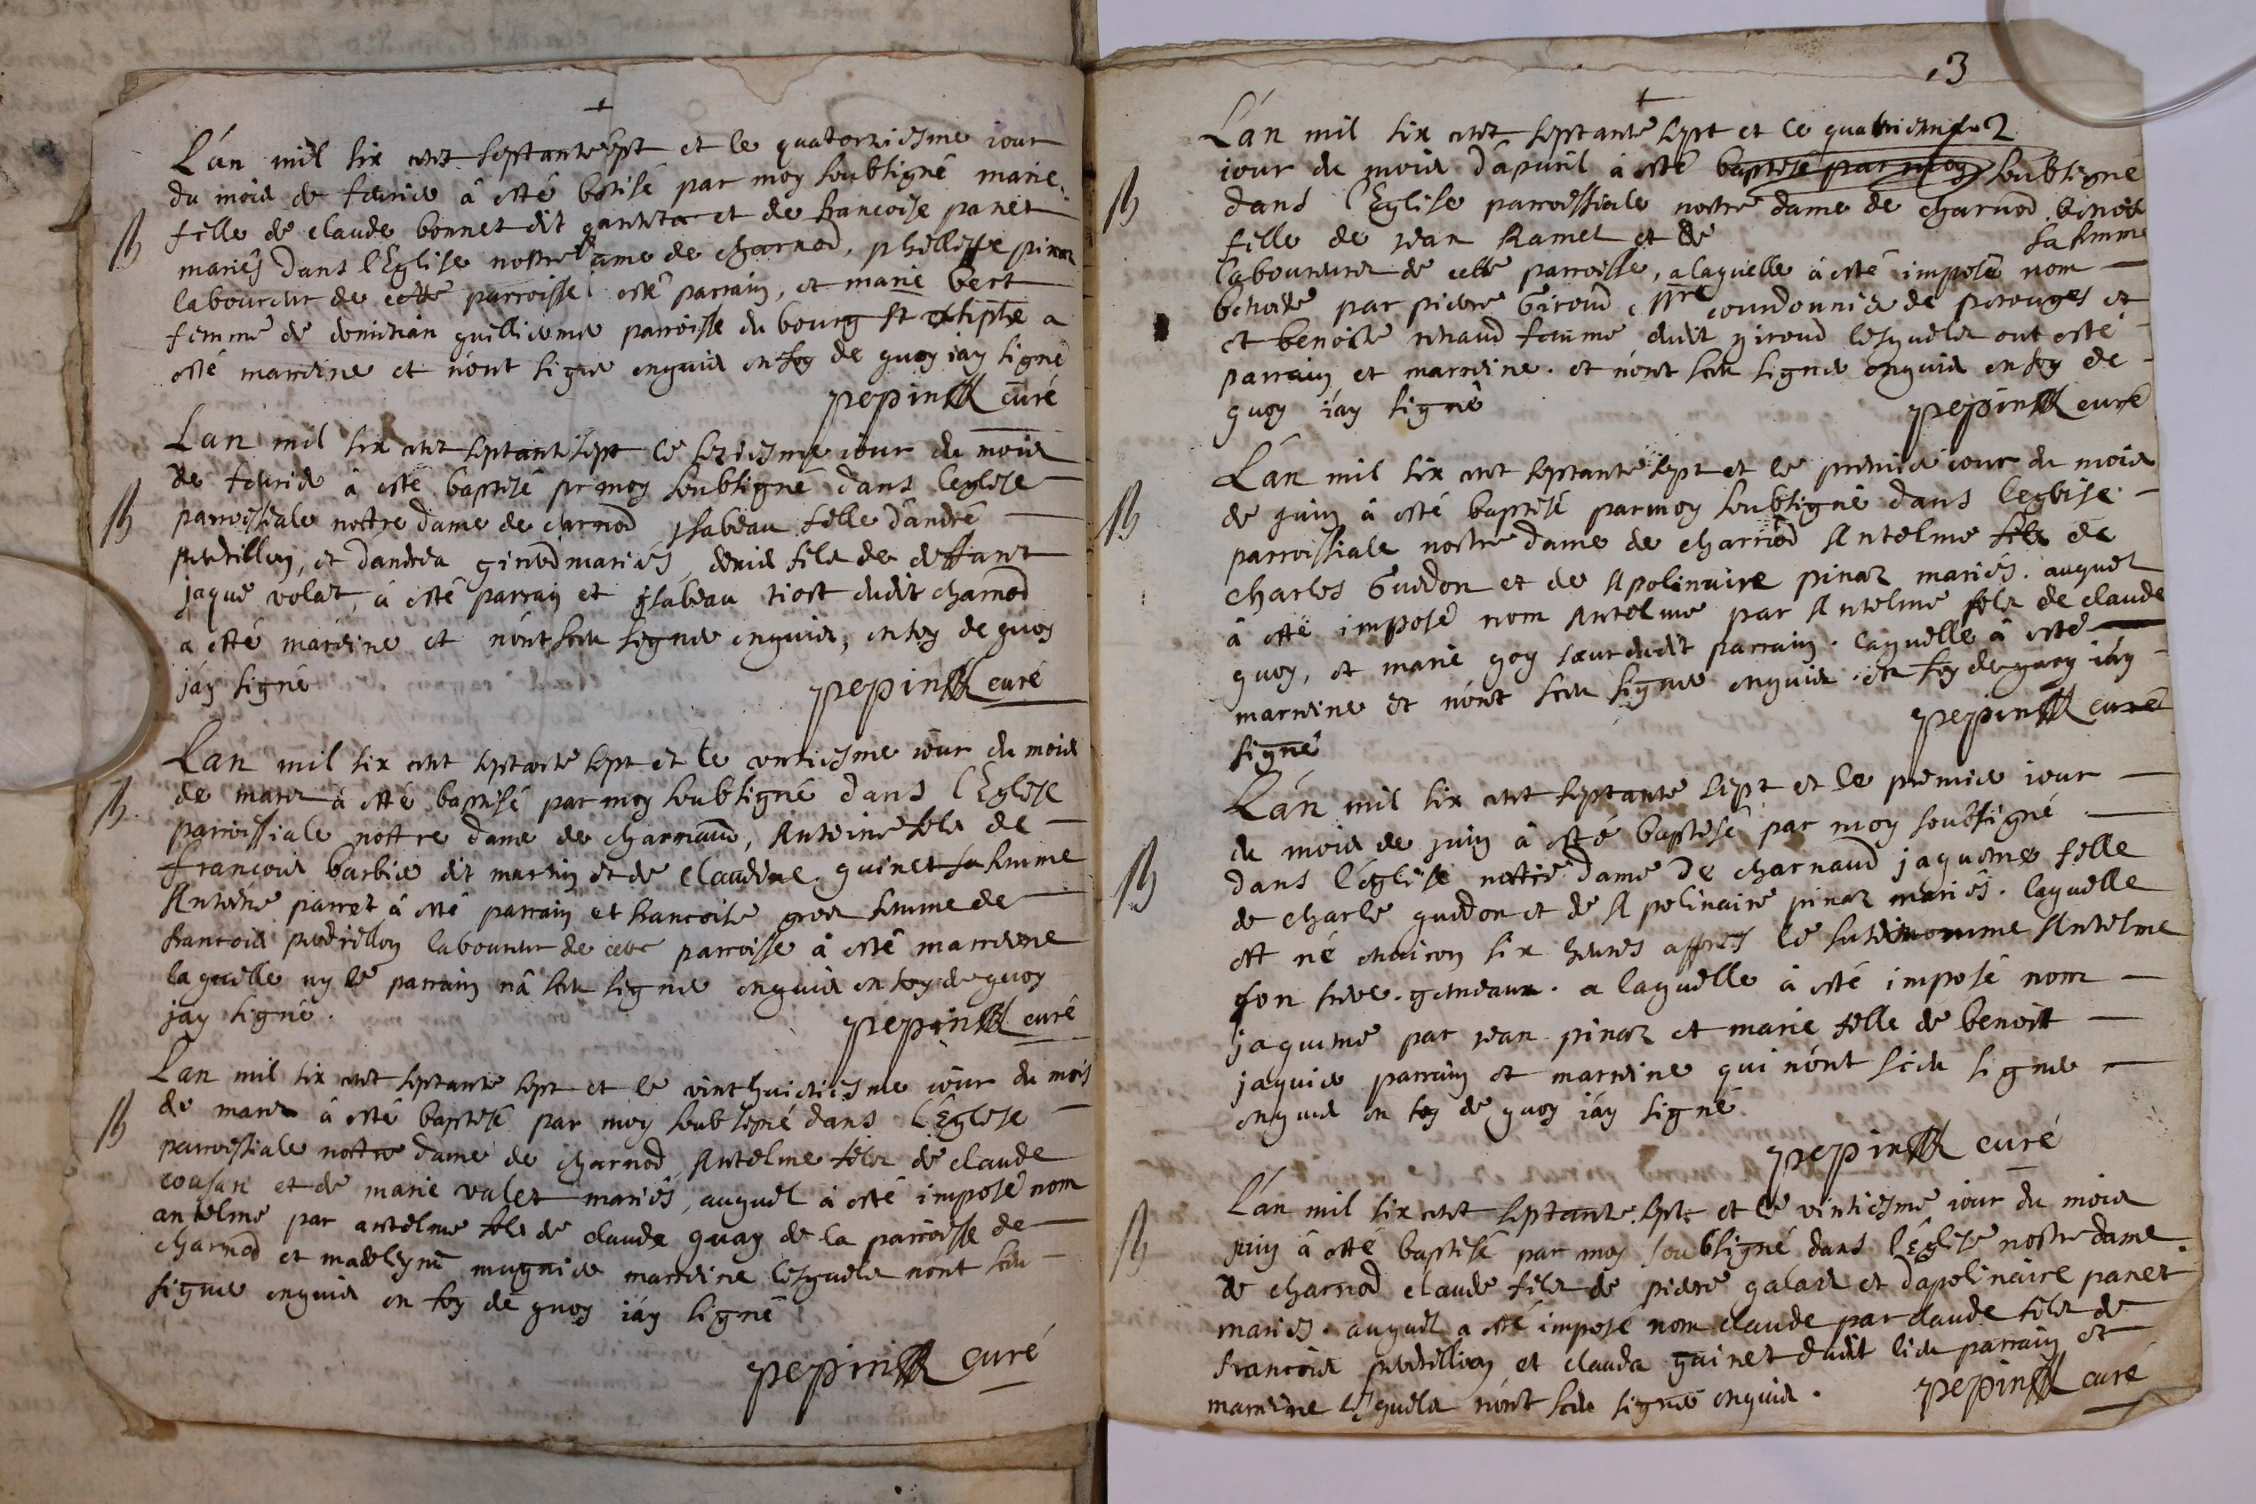 +
Lán mil six cent septante sept et le quatorziesme iour
du mois de feurier â esté batisé par moy soubsigné marie
fille de claude bonnet dit et de francoise panet
mariés dans l'Eglise nostre dame de charnod, phillippe pinaz
laboureur de cette parroisse esté parrain, et marie bert
femme de parroisse du bourg st a
esté marreine et nónt signer enquis en foy de quoy iay signé
pepin curé
Lan mil six cent septante sept le seziesme iour du mois
de feurier â esté baptisé par moy soubsigné dans leglise
parroissiale nostre dame de charnod ysabeau fille dándré
pudrillion, et dandréa girod mariés, denis fils de deffunt
jaque volat, â esté parrain et ysabeau tiost dudit charnod
a esté mareine et nónt sceu signer enquis, en foy de quoy
jáy signé pepin curé
Lan mil six cent septante sept et le vintiesme iour du mois
de mars â esté baptisé par moy soubsigné dans l'Eglise
parroissiale nostre dame de charnaud, Antoine fils de
francois barbier dit martin et de claudine guinet sa femme
Antoine parret â esté parrain et francoise gros femme de
francois pudrillon laboureur de cete parroisse â esté marreine
laquelle ny le parrain nâ sceu signer enquis en foy de quoy
jay signé. pepin curé
Lan mil six cent septante sept et le vinthuictiesme iour du mois
de mars â esté baptisé par moy soubsigné dans l'Eglise
parroissiale nostre dame de charnod, Antelme fils de claude
cousan et de marie valet mariés, auquel â esté imposé nom
antelme par antelme fils de claude quay de la parroisse de
charnod et madelyne mugnier marreine lesquels nont sceu
signer enquis en foy de quoy iáy signé
pepin curé
3
+
Lán mil six cent septante sept et le quatriesme
iour du mois dápuril â esté baptisé par moy soubsigné
dans l'Eglise parroissiale nostre dame de charnod benoite
fille de jean Ramel et de sa femme
laboureurs de cette parroisse, a laquelle â esté imposé nom
benoite par pierre Giroud mre courdonnier de perouges et
et benoite renaud femme dudit giroud lesquels ont esté
parrain et marreine. et nónt sceu signer enquis en foy de
quoy iáy signé pepin curé
Lán mil six cent septante sept et le premier iour du mois
de juin â esté baptisé par moy soubsigné dans leglise
parroissiale nostre dame de charnod Antelme fils de
charles Guidon et de Apolinaire pinaz mariés. auquel
â esté imposé nom Antelme par Antelme fils de claude
quoy, et marie goy sœur dudit parrain. laquelle â esté
marreine et nónt sceu signer enquis en foy de quoy iáy
signé pepin curé
Lán mil six cent septante sept et le premier iour
du mois de juin â esté baptisé par moy soubsigné
dans léglise nostre dame de charnaud jaqueme fille
de charle guidon et de Apolinaire pinaz mariés. laquelle
est né enuiron six heures appres le susdinomme Antelme
son frere. gemeaux. a laquelle â esté imposé nom
jaqueme par jean pinaz et marie fille de benoist
jaquier parrain et marreine qui nónt sceu signer
enquis en foy de quoy iáy signé
pepin curé
Lán mil six cent septante. sept et le vintiesme iour du mois
juin â esté baptisé par moy soubsigné dans l'Eglise nostre dame
de charnod claude fils de pierre galais et dapolinaire panet
mariés. auquel a esté imposé nom claude par claude fils de
francois pudrillion et clauda guinet dudit lieu parrain et
marreine lesquels nónt sceu signer enquis. pepin curé